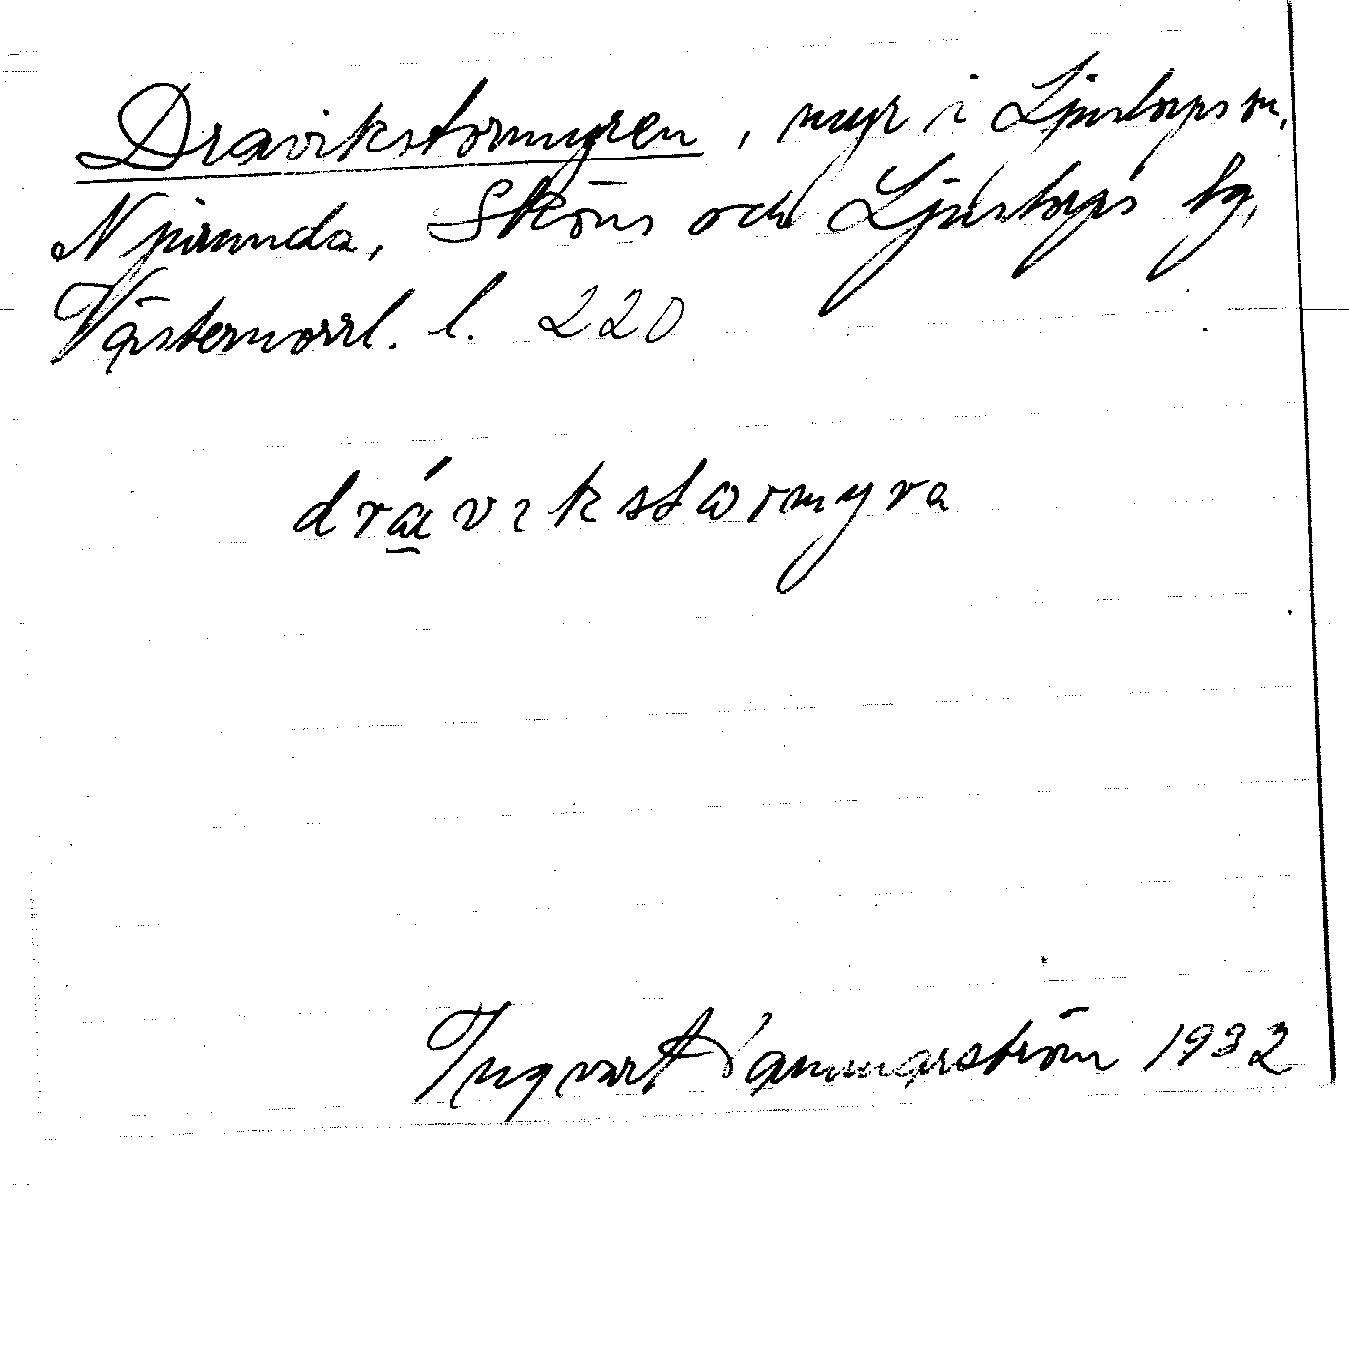 Dravikstormyren, myr i Ljustorps sn,
Njurunda, Sköns och Ljustorps tg,
Västernorrl. l. 220
drávıkstωrmyra
Ingvart 1932